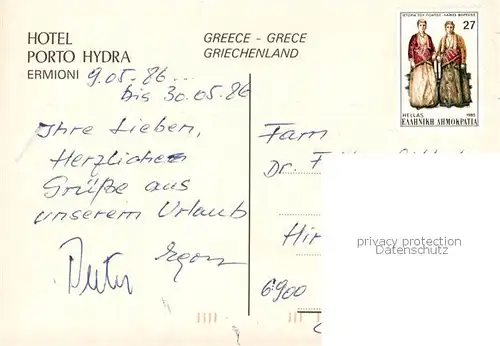 HOTEL
PORTO HYDRA
ERMIONI
GREECE - GRECE
GRIECHENLAND
27
HELLAS 1985
ΕΛΛΗΝΙΚΗ ΔΗΜΟΚΡΑΤΙΑ
9.05.86 ...
bis 30.05.86
Ihre Lieben,
Herzliche
Grüße aus
unserem Urlaub
Egon
Fam
Dr.
Hir
6900
privacy protection
Datenschutz